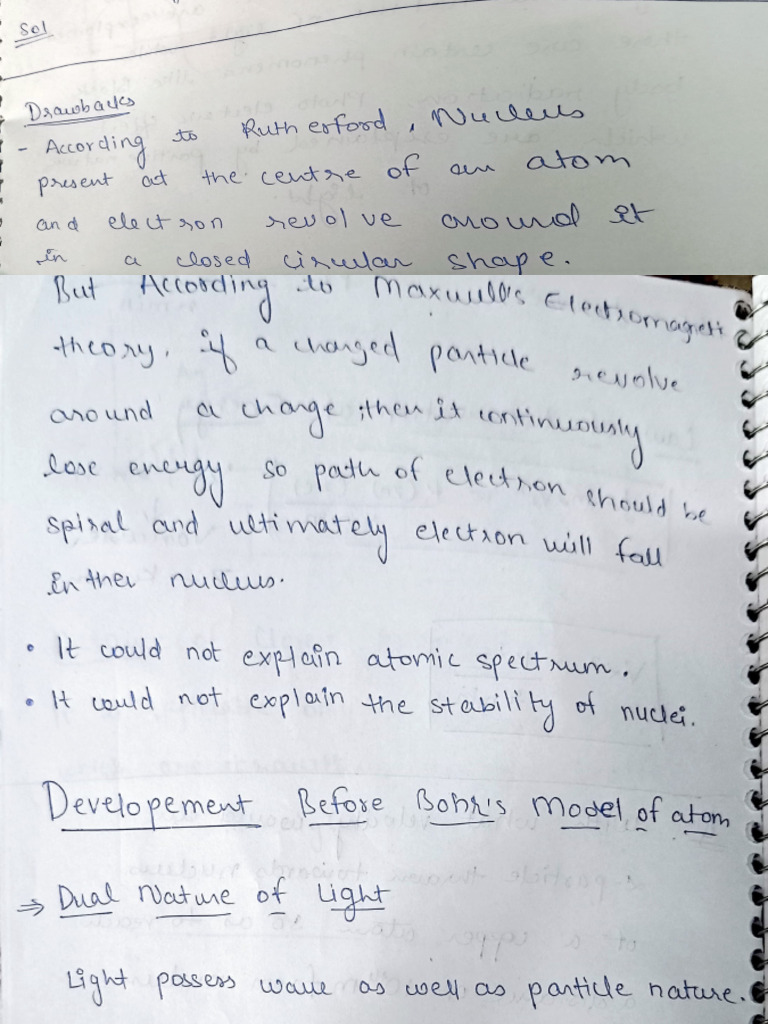 Sol
Drawbacks
- According to Rutherford, Nucleus
present at the centre of an atom
and electron revolve around it
in a closed circular shape.
But According to Maxwell's Electromagnetic
theory, if a charged particle revolve
around a charge, then it continuously
lose energy so path of electron should be
spiral and ultimately electron will fall
in the nucleus.
• It could not explain atomic spectrum.
• It could not explain the stability of nuclei.
Developement Before Bohr's Model of atom
⇒ Dual Nature of Light
Light possess wave as well as particle nature.